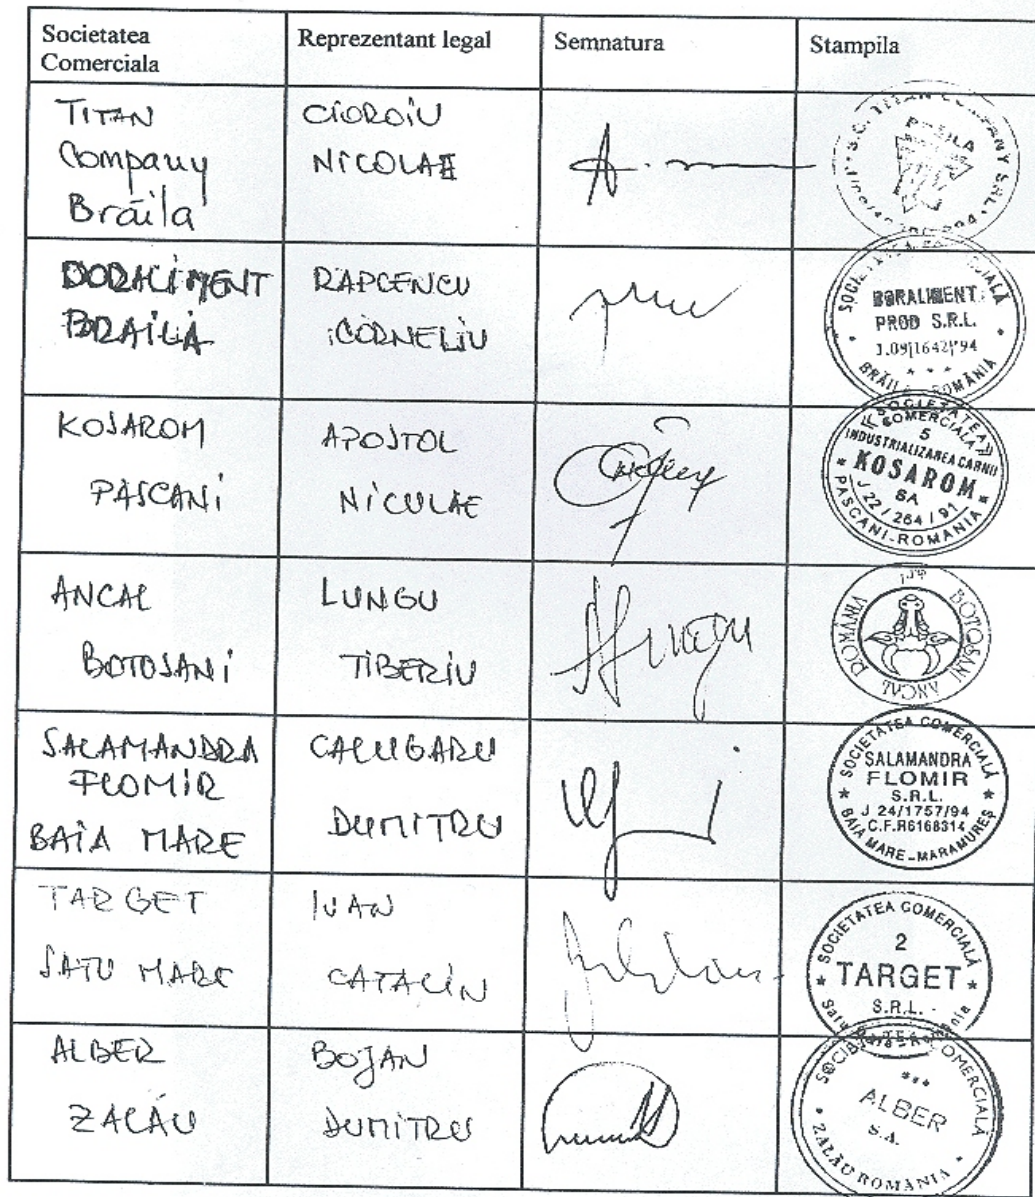 Societatea
Comerciala
Reprezentant legal
Semnatura
Stampila
TITAN
Company
Brăila
CIOROIU
NICOLAE
S.C. TITAN COMPANY SRL
BRAILA
DORALIMENT
BRAILA
RAPCENCU
CORNELIU
SOCIETATEA COMERCIALĂ
DORALIMENT
PROD S.R.L.
J.09|1642|'94
BRĂILA ROMÂNIA
KOSAROM
PASCANI
APOSTOL
NICULAE
SOCIETATEA
COMERCIALA
5
INDUSTRIALIZAREA CARNII
* KOSAROM *
SA
J 22 / 264 / 91
PASCANI-ROMANIA
ANCAL
BOTOSANI
LUNGU
TIBERIU
ROMÂNIA
BOTOȘANI
ANCAL
SALAMANDRA
FLOMIR
BAIA MARE
CALUGARU
DUMITRU
SOCIETATEA COMERCIALĂ
SALAMANDRA
FLOMIR
S.R.L.
J 24/1757/94
C.F.R6168314
* BAIA MARE-MARAMUREȘ *
TARGET
SATU MARE
IVAN
CATALIN
SOCIETATEA COMERCIALĂ
2
* TARGET *
S.R.L.
ALBER
ZALĂU
BOJAN
DUMITRU
SOCIETATEA COMERCIALĂ
***
ALBER
S.A.
* ZALĂU ROMÂNIA *